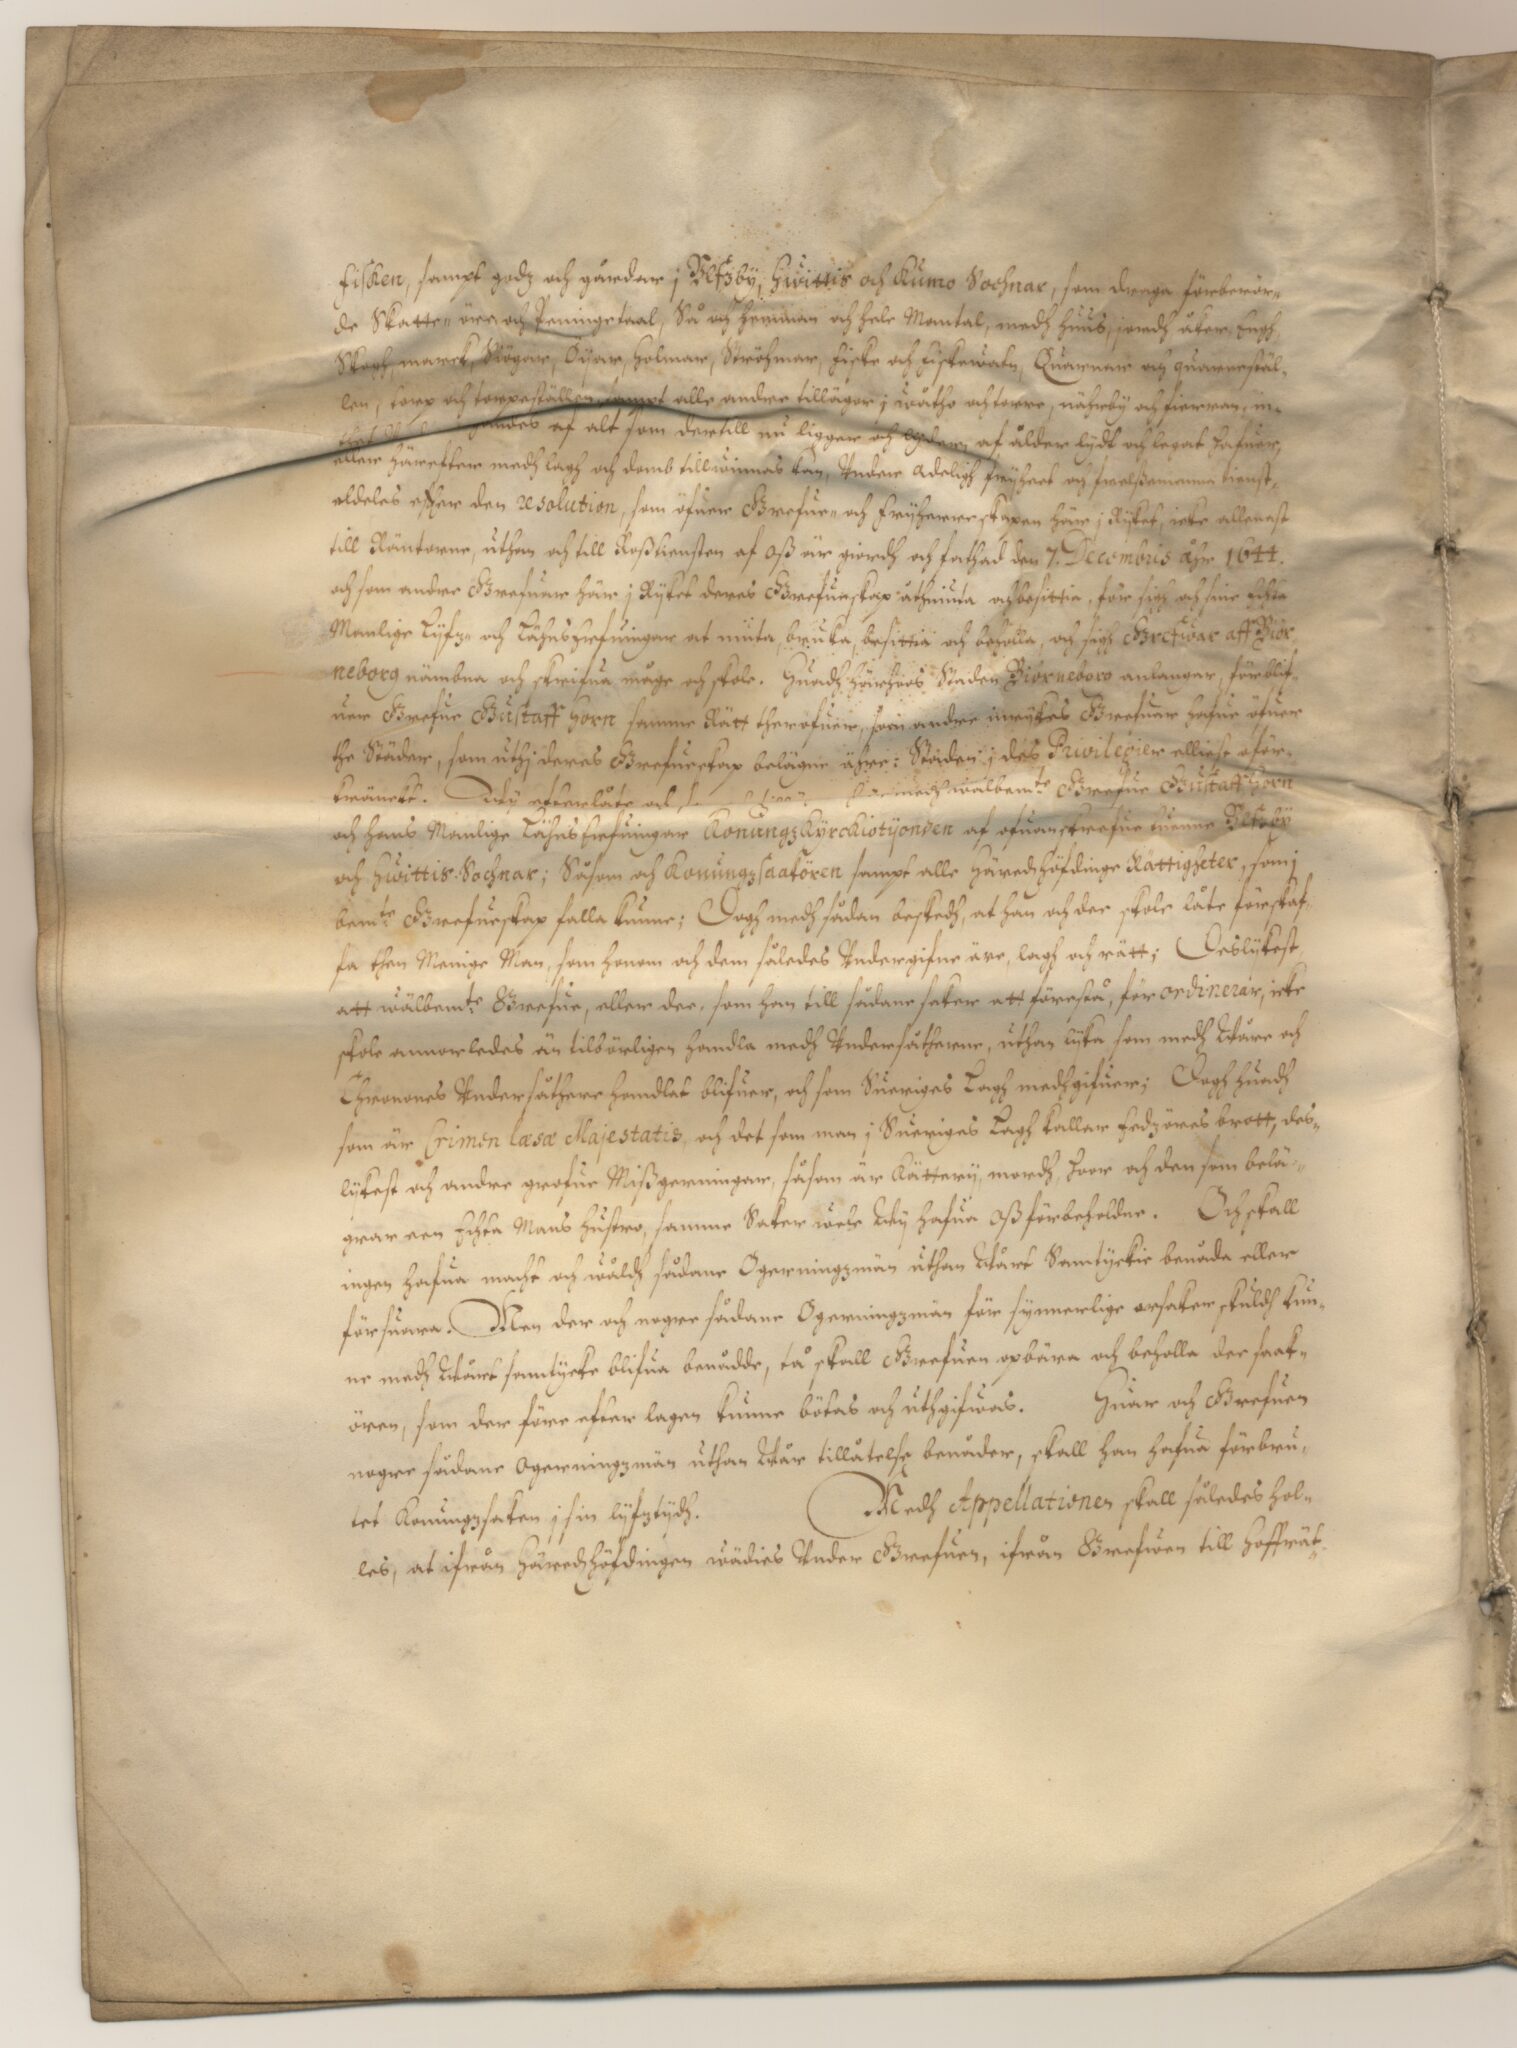 fisken, sampt godz och gårdar i Ulfzby, Hwittis och Kumo Sochnar, som draga förberör=
de Skatte= öre och Peningetaal, Så och hemman och hele Mantal, medh huus, jordh åker Engh,
Skogh, marck, Siögar, Öÿar, Holmar, Ströhmar, fiske och fiskewatn, Quarnar och quarnestäl=
len, torp och torpeställen, sampt alle andre tillägor i wåtho och torre, närby och fierran, in=
af alt som dertill nu ligger och af ålder lydt och legat hafuer,
eller härefter medh lagh och domb tillwinnas kan, Under Adeligh frijheet och frelssemanna tienst,
aldeles effter den resolution, som öfuer Grefue= och Frijherreskapen här i Rijket, icke allenast
till Räntorne, uthan och till Rosstiensten af Oss är giordh och fathad den 7. Decembris åhr 1644.
och som andre Grefuar här i Rijket deres Grefueskap åthniuta och besittia, för sigh och sine echta
Manlige Lijfz= och Lähnsarfuingar at niuta, bruka, besittia och beholla, och sigh Grefwar aff Biör
neborg nämbna och skrifua måge och skole. Huadh härhoos Staden Biörneborg anlangar, förblif=
uer Grefue Gustaff Horn samme Rätt theröfuer, som andre inrijkes Grefuar hafue öfuer
the Städer, som uthj deres Grefueskap belägne ähre: Staden i des Privilegier elliest oför=
kränckt. Wij efterlåte och wälbem:te Grefue Gustaff Horn
och hans Manlige Lähnsarfuingar Konungz Kyrckiotijonden af ofuanskrefne tuenne Ulfzbÿ
och Hwittis Sochnar; Såsom och Konungzsaakören sampt alle Häredzhöfdinge Rättigheter, som i
bem:te Grefueskap falla kunne; Dogh medh sådan beskedh, at han och dee skole låte förskaf=
fa then Menige Man, som honom och dem således Undergifne äre, lagh och rätt; Deslijkest
att wälbem:te Grefue, eller dee, som han till sådane saker att förestå, förordinerar, icke
skole annorledes än tilbörligen handla medh Undersåtherne, uthan lijka som medh Wåre och
Chronones Undersåthere handlat blifuer, och som Sueriges Lagh medhgifuer; Dogh huadh
som är Crimen læsæ Majestatis och det som man i Sueriges Lagh kallar Edzöres brott, des=
lijkest och andre grofue Missgerningar, såsom är Kätterij, mordh, Hoor och den som belä=
grar een Echta Mans hustro, samme Saker wele Wij hafua Oss förbeholdne. Och skall
ingen hafua macht och wåldh sådane Ogerningzmän uthan Wårt Samtÿckie benåda eller
försuara. Men der och nogre sådane Ogerningzmän för synnerlige orsaker skuldh kun=
ne medh Wårt samtycke blifua benådde, tå skall Grefuen opbära och beholla dee saak=
ören, som der före efter lagen kunne bötas och uthgifwas. Huar och Grefuen
nogre sådane Ogerningzmän uthan Wår tillåtelse benåder, skall han hafua förbru=
tet Konungzsaken i sin lijfztijdh. Medh Appellationen skall således hol=
les, at ifrån Häredzhöfdingen wädies Under Grefuen, ifrån Grefwen till Hoffrät=